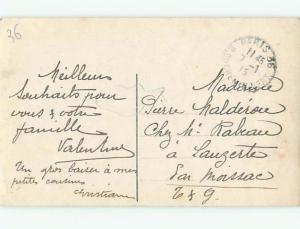 36
Meilleurs
Souhaits pour
vous & votre
famille
Valentine
Un gros baiser à mes
petites cousines
Christiane
PARIS 36
11 45
7 - 1
15
Madame
Pierre Maldérou
Chez Mr Rabeau
à Lauzerte
par Moissac
T & G.